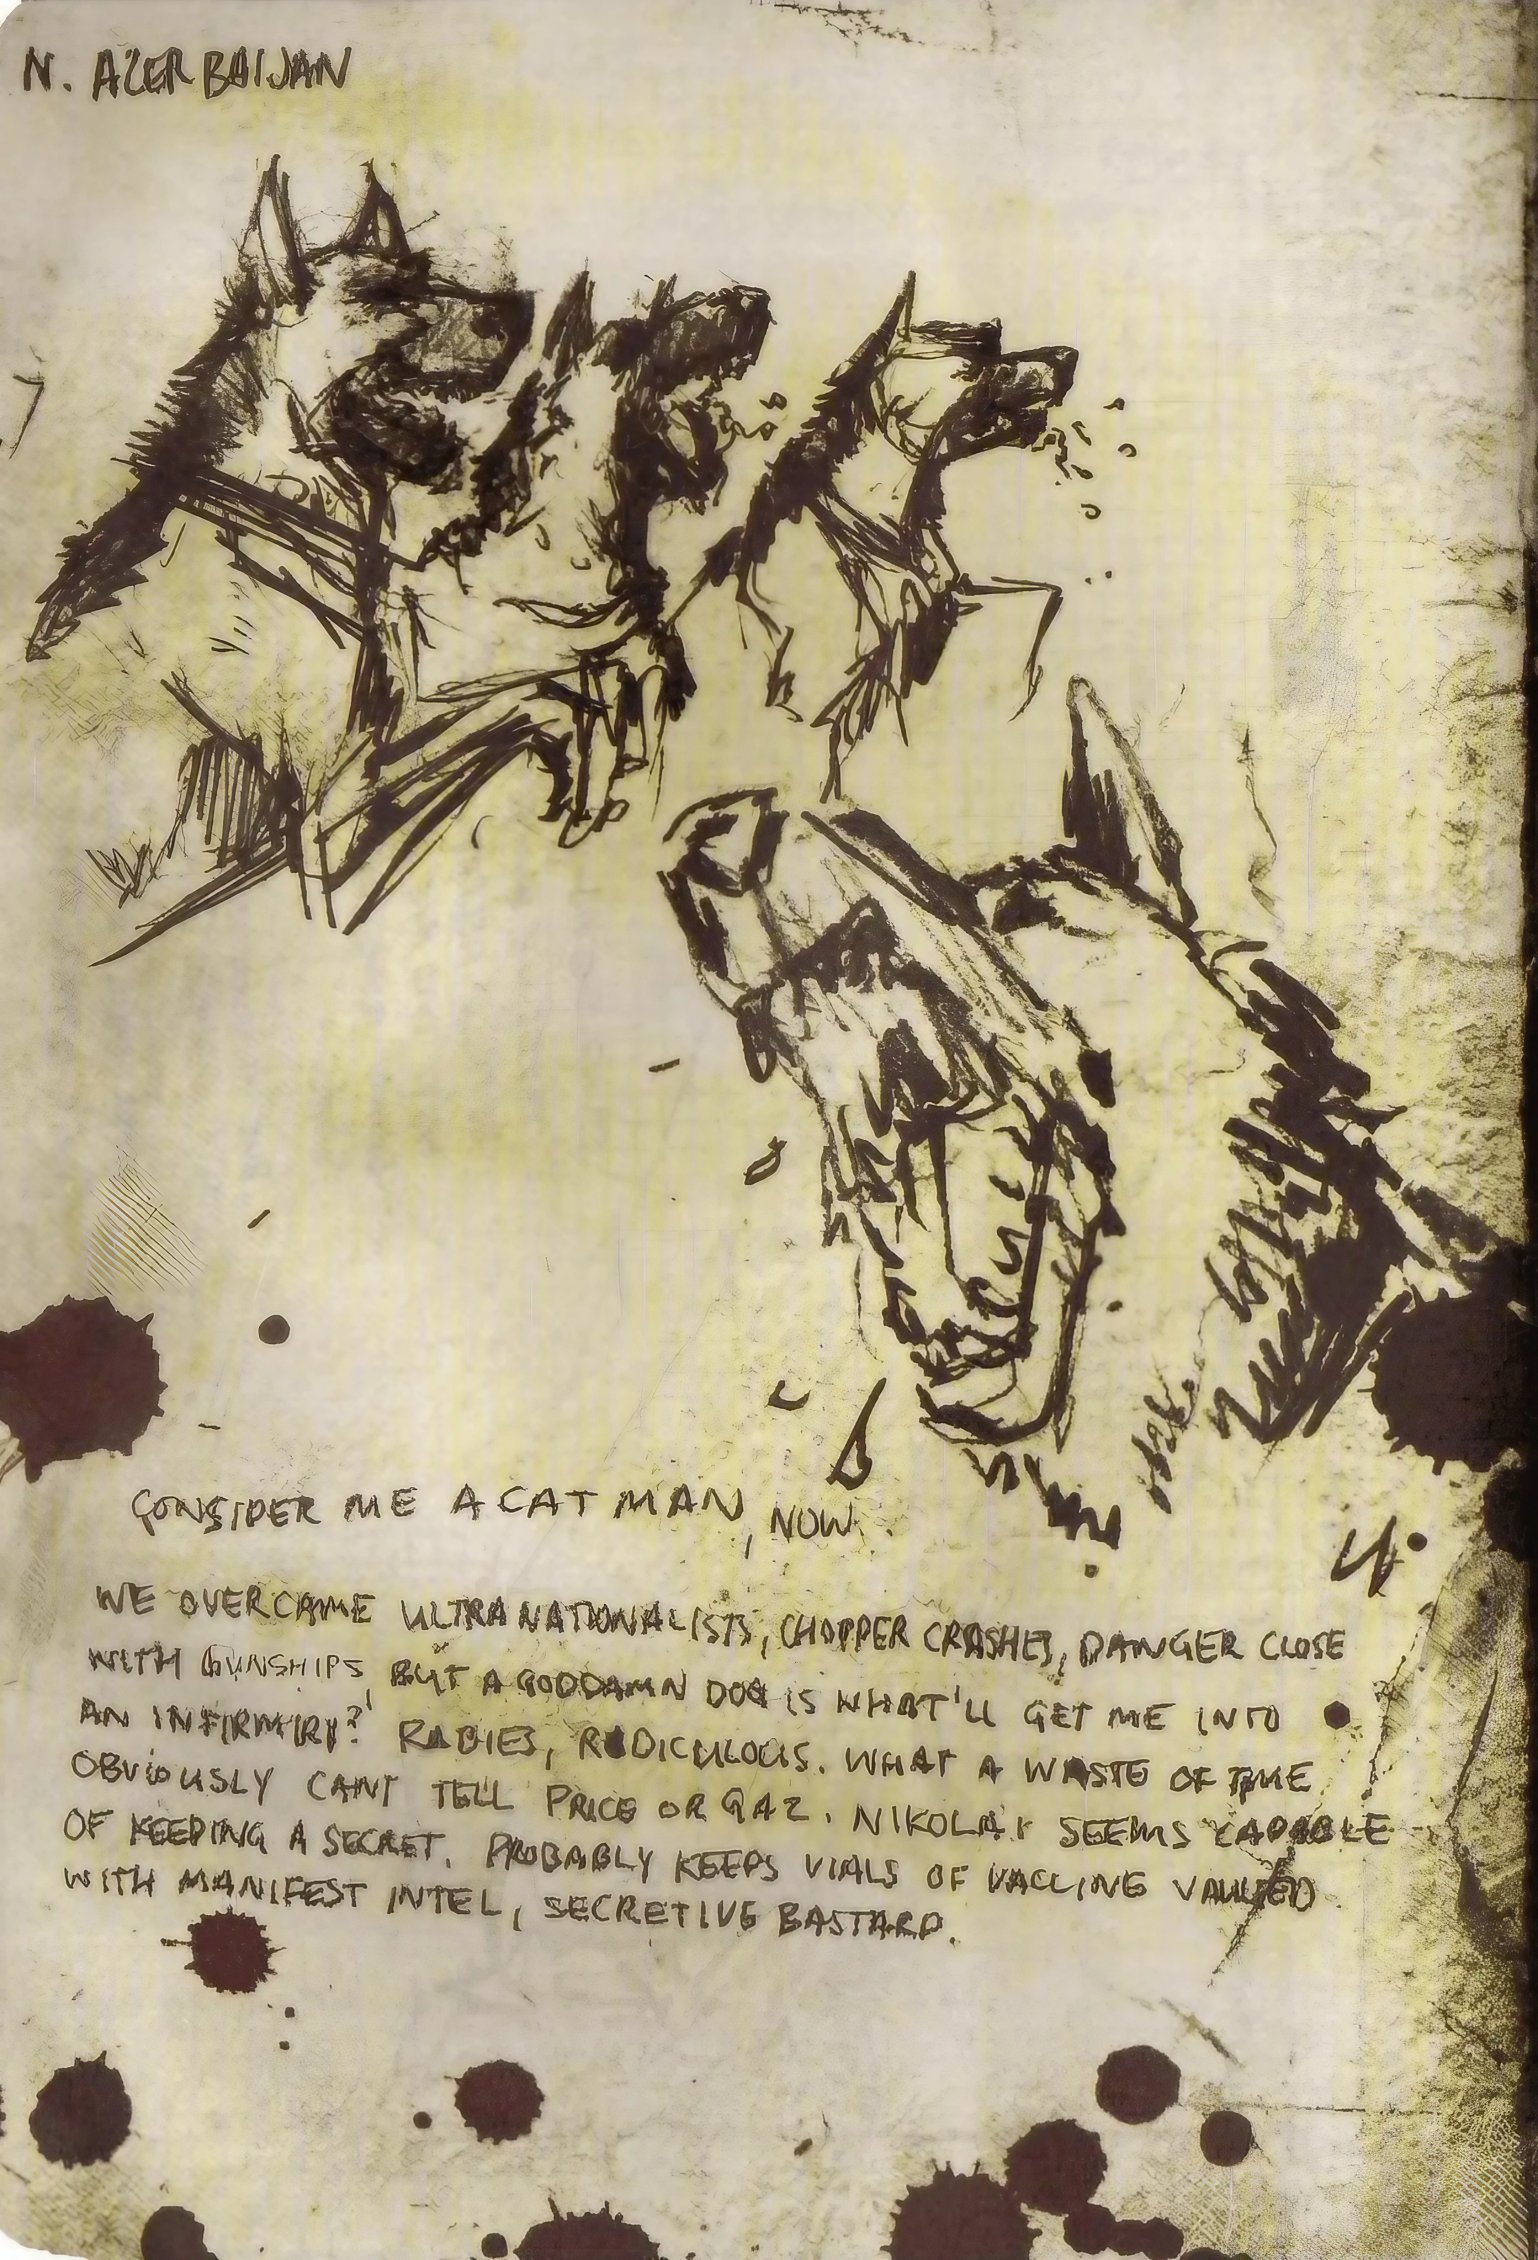 N. AZERBAIJAN
CONSIDER ME A CAT MAN, NOW.
WE OVERCAME ULTRANATIONALISTS, CHOPPER CRASHES, DANGER CLOSE
WITH GUNSHIPS, BUT A GODDAMN DOG IS WHAT'LL GET ME INTO
AN INFIRMIRY? RABIES, RIDICULOUS. WHAT A WASTE OF TIME
OBVIOUSLY CANT TELL PRICE OR GAZ. NIKOLAI SEEMS CAPABLE
OF KEEPING A SECRET. PROBABLY KEEPS VIALS OF VACCINE VAULTED
WITH MANIFEST INTEL, SECRETIVE BASTARD.